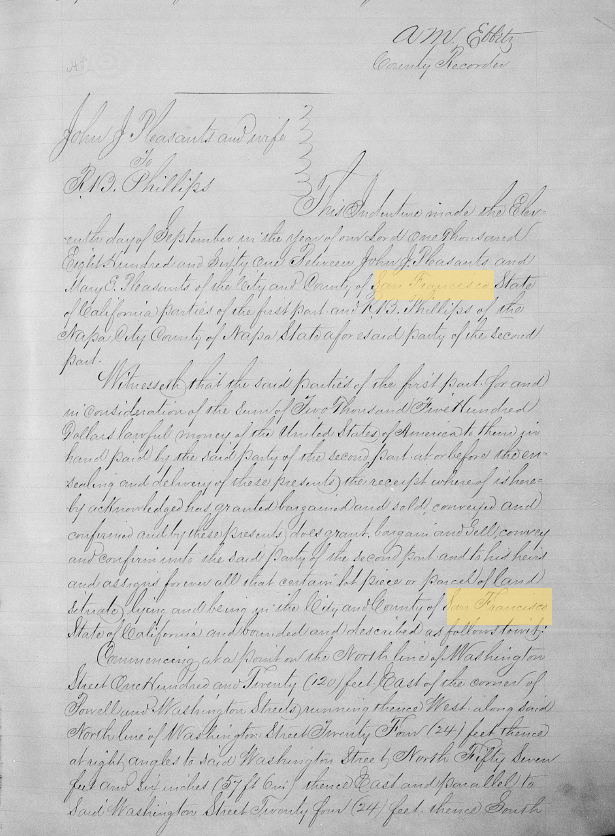 A M Ebbets
County Recorder
John J Pleasants and wife
To
R. B. Phillips
This Indenture made the Elev-
enth day of September in the year of our Lord One Thousand
Eight Hundred and Sixty One Between John J. Pleasants and
Mary E. Pleasants of the City and County of San Francisco State
of California parties of the first part and R. B. Phillips of the
Napa City County of Napa State aforesaid party of the second
part.
Witnesseth that the said parties of the first part for and
in consideration of the sum of Two Thousand Five Hundred
Dollars lawful money of the United States of America to them in
hand paid by the said party of the second part at or before the en-
sealing and delivery of these presents the receipt whereof is here-
by acknowledged has granted bargained and sold, conveyed and
confirmed and by these presents does grant, bargain and Sell, convey
and confirm unto the said party of the second part and to his heirs
and assigns forever all that certain lot piece or parcel of land
situate, lying and being in the City and County of San Francisco
State of California and bounded and described as follows towit:
Commencing at a point on the North line of Washington
Street One Hundred and Twenty (120) feet East of the corner of
Powell and Washington Streets, running thence West along said
North line of Washington Street Twenty Four (24) feet thence
at right angles to said Washington Street, North Fifty Seven
feet and Six inches (57 ft 6 in) thence East and parallel to
said Washington Street Twenty four (24) feet, thence South